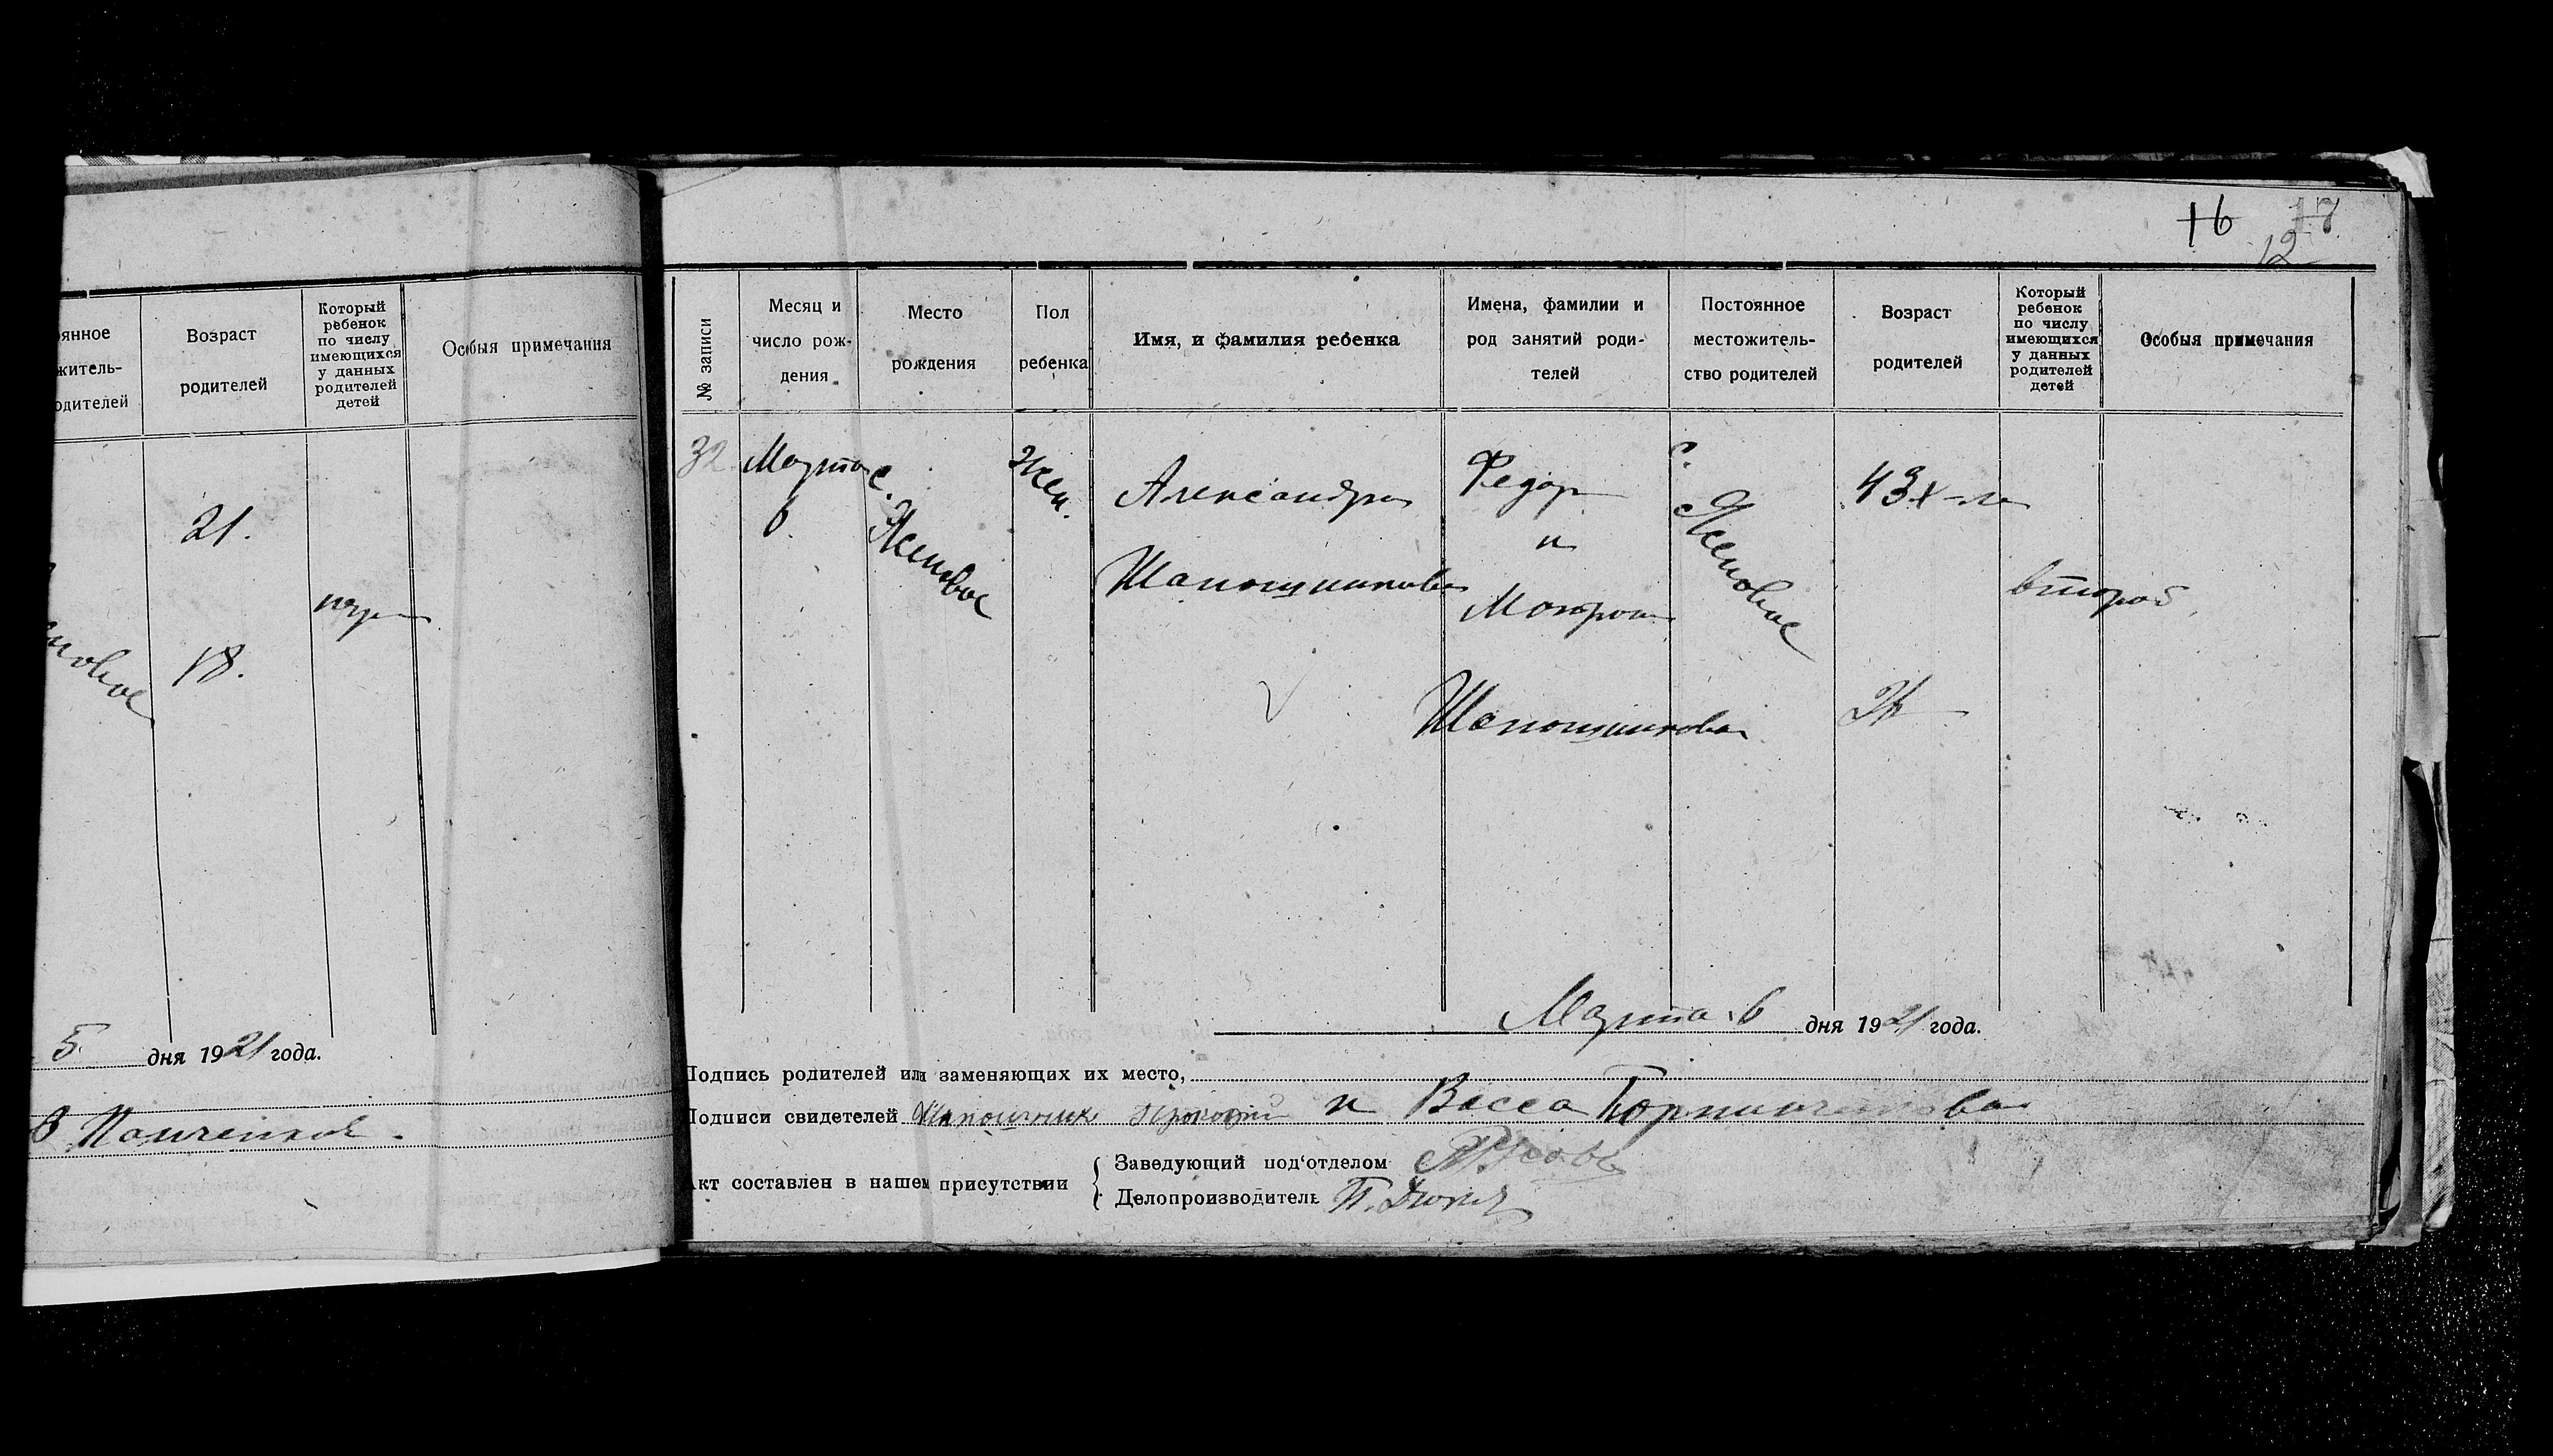 16 17
12
оянное
житель-
одителей
Возраст
родителей
Который
ребенок
по числу
имеющихся
у данных
родителей
детей
Особыя примечания
21.
18.
5 дня 1921 года.
Панченков.
№ записи
Месяц и
число рож-
дения
Место
рождения
Пол
ребенка
Имя, и фамилия ребенка
Имена, фамилии и
род занятий роди-
телей
Постоянное
местожитель-
ство родителей
Возраст
родителей
Который
ребенок
по числу
имеющихся
у данных
родителей
детей
Особыя примечания
32
Марта
6.
с.
Ясеновое
Жен.
Александра
Шапошникова
Федор
и
Матрона
Шапошникова
с.
Ясеновое
43х-ле
второй
Марта 6 дня 1921 года.
Подпись родителей или заменяющих их место,
Подписи свидетелей Шапошник Прокофий и Васса
Акт составлен в нашем присутствии
Заведующий под'отделом
Делопроизводитель П.